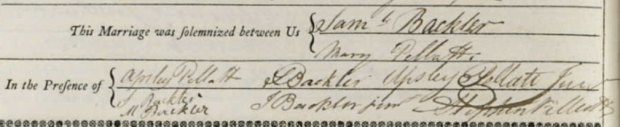 This Marriage was solemnized between Us { Saml Backler
Mary Pellatt.
In the Presence of { Apsley Pellatt S Backler Apsley Pellatt Junr
J Backler J Backler Junr Stephen Pellatt
M Backler